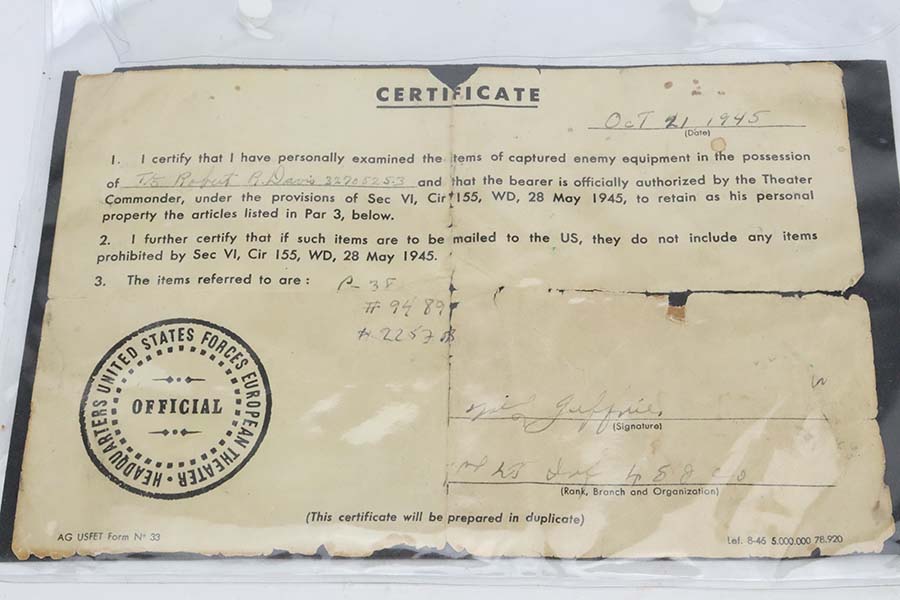 CERTIFICATE
OcT 21 1945
(Date)
1. I certify that I have personally examined the items of captured enemy equipment in the possession
of T/5 Robert R. Davis and that the bearer is officially authorized by the Theater
Commander, under the provisions of Sec VI, Cir 155, WD, 28 May 1945, to retain as his personal
property the articles listed in Par 3, below.
2. I further certify that if such items are to be mailed to the US, they do not include any items
prohibited by Sec VI, Cir 155, WD, 28 May 1945.
3. The items referred to are : P-38
# 9489
HEADQUARTERS UNITED STATES FORCES EUROPEAN THEATER
OFFICIAL
(Signature)
(Rank, Branch and Organization)
(This certificate will be prepared in duplicate)
AG USFET Form No 33
Lef. 8-45 5.000.000 78.920